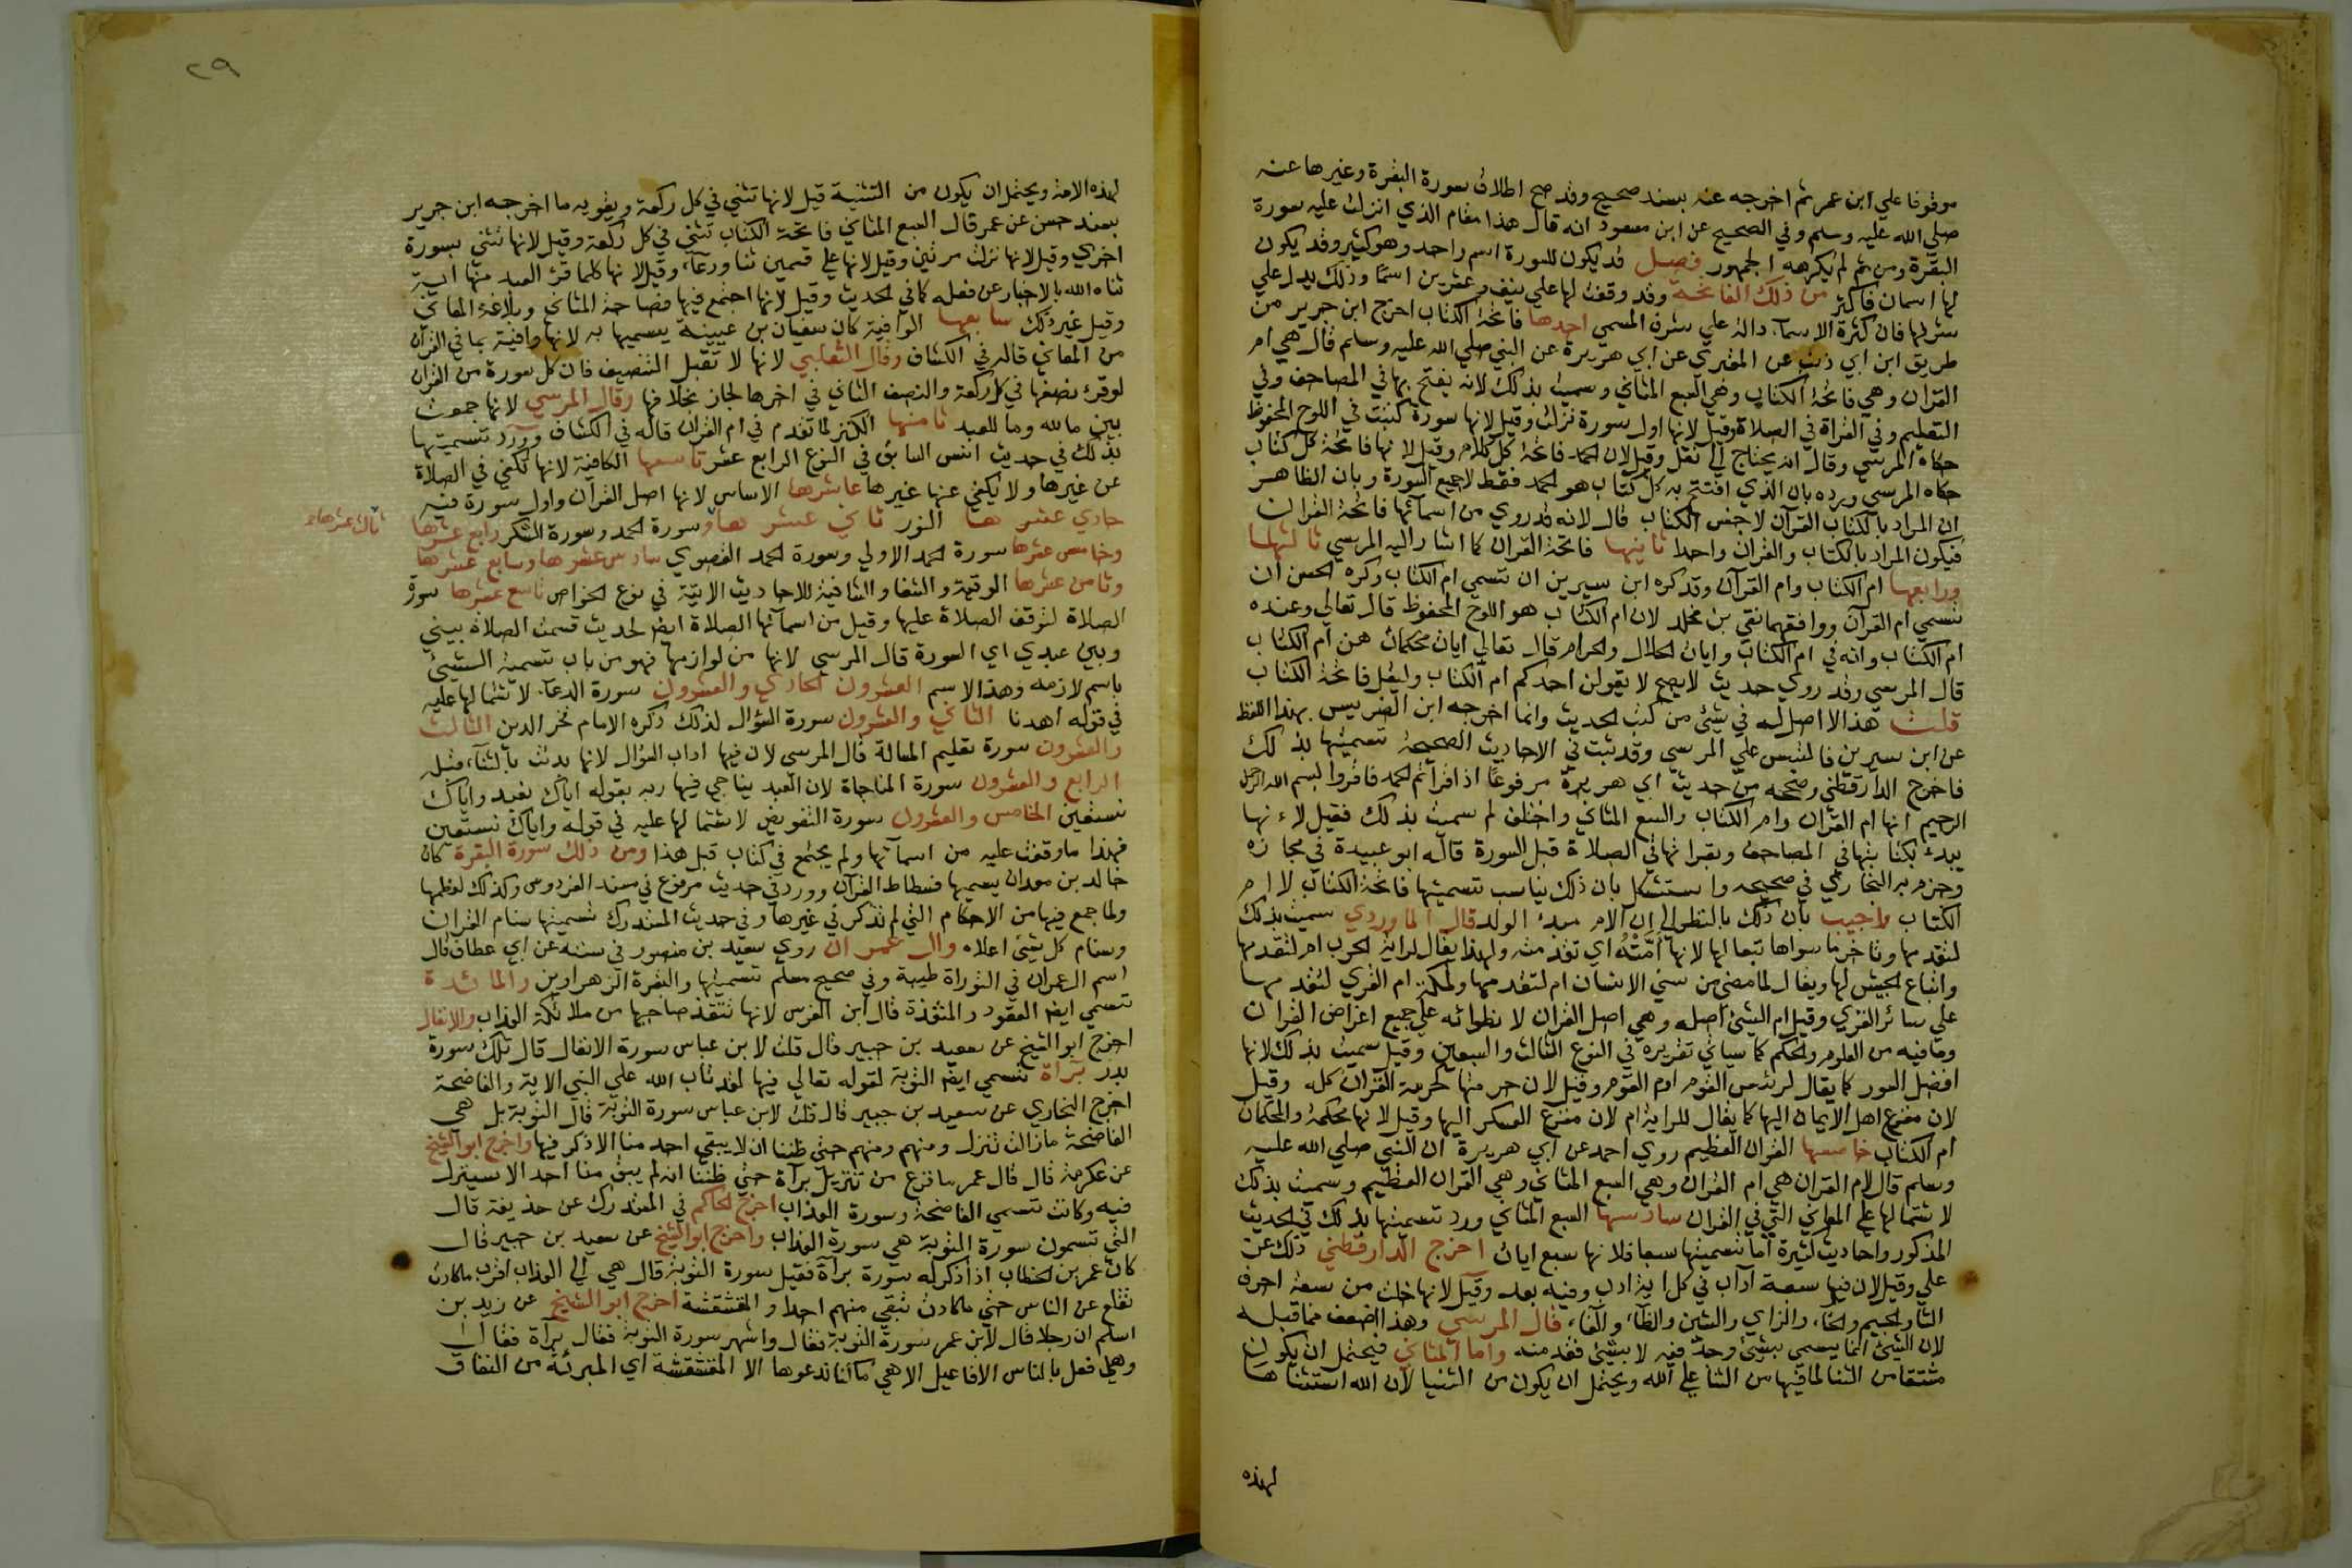 موقوفا علي ابن عمر ثم اخرجه عنه بسند صحيح وقد صح اطلاق سورة البقرة وغيرها عنه
صلي الله عليه وسلم وفي الصحيح عن ابن مسعود انه قال هذا مقام الذي انزلت عليه سورة
البقرة ومن ثم لم يكرهه الجمهور فصل قد يكون للسورة اسم واحد وهو كثير وقد يكون
لها اسمان فاكثر من ذلك الفاتحة وقد وقفت لها علي نيف وعشرين اسما وذلك يدل علي
شرفها فان كثرة الاسماء دالة علي شرف المسمي احدها فاتحة الكتاب اخرج ابن جرير من
طريق ابن ابي ذئب عن المقبري عن ابي هريرة عن النبي صلي الله عليه وسلم قال هي ام
القران وهي فاتحة الكتاب وهي السبع المثاني وسميت بذلك لانه يفتح بها في المصاحف وفي
التعليم وفي القراة في الصلاة وقيل لانها اول سورة نزلت وقيل لانها سورة كتبت في اللوح المحفوظ
حكاه المرسي وقال انه يحتاج الي نقل وقيل لان الحمد فاتحة كل كلام وقيل لانها فاتحة كل كتاب
حكاه المرسي ويرده بان الذي افتتح به كل كتاب هو الحمد فقط لا جميع السورة وبان الظاهر
ان المراد بالكتاب القرآن لا جنس الكتاب قال لانه قد روي من اسمائها فاتحة القران
فيكون المراد بالكتاب والقران واحدا ثانيها فاتحة القران كما اشار اليه المرسي ثالثها
ورابعها ام الكتاب وام القرآن وقد كره ابن سيرين ان تسمي ام الكتاب وكره الحسن ان
تسمي ام القرآن ووافقهما تقي بن مخلد لان ام الكتاب هو اللوح المحفوظ قال تعالي وعنده
ام الكتاب وانه في ام الكتاب وايات الحلال والحرام قال تعالي ايات محكمات هن ام الكتاب
قال المرسي وقد روي حديث لا يصح لا يقولن احدكم ام الكتاب وليقل فاتحة الكتاب
قلت هذا لا اصل له في شئ من كتب الحديث وانما اخرجه ابن الضريس بهذا اللفظ
عن ابن سيرين فالتبس علي المرسي وقد ثبت في الاحاديث الصحيحة تسميتها بذلك
فاخرج الدارقطني وصححه من حديث ابي هريرة مرفوعا اذا قرأتم الحمد فاقروا بسم الله الرحمن
الرحيم انها ام القران وام الكتاب والسبع المثاني واختلف لم سميت بذلك فقيل لانها
يبدء بكتابتها في المصاحف وبقراتها في الصلاة قبل السورة قاله ابو عبيدة في مجازه
وجزم به البخاري في صحيحه واستشكل بان ذلك يناسب تسميتها فاتحة الكتاب لا ام
الكتاب واجيب بان ذلك بالنظر الي ان الام مبدء الولد قال الماوردي سميت بذلك
لتقدمها وتاخر ما سواها تبعا لها لانها أمّته اي تقدمته ولهذا يقال لراية الحرب ام لتقدمها
واتباع الجيش لها ويقال لما مضي من سني الانسان ام لتقدمها ولمكة ام القري لتقدمها
علي سائر القري وقيل ام الشئ اصله وهي اصل القران لانطوائه علي جميع اغراض القران
وما فيه من العلوم والحكم كما سياتي تقريره في النوع الثالث والسبعين وقيل سميت بذلك لانها
افضل السور كما يقال لرئيس القوم ام القوم وقيل لان حرمتها كحرمة القران كله وقيل
لان مفزع اهل الايمان اليها كما يقال للراية ام لان مفزع العسكر اليها وقيل لانها محكمة والمحكمات
ام الكتاب خامسها القران العظيم روي احمد عن ابي هريرة ان النبي صلي الله عليه
وسلم قال لام القران هي ام القران وهي السبع المثاني وهي القران العظيم وسميت بذلك
لاشتمالها علي المعاني التي في القران سادسها السبع المثاني ورد تسميتها بذلك في الحديث
المذكور واحاديث كثيرة اما تسميتها سبعا فلانها سبع ايات اخرج الدارقطني ذلك عن
علي وقيل لان فيها سبعة آداب في كل اية ادب وفيه بعد وقيل لانها خلت من سبعة احرف
الثا والجيم والخا، والزاي والشين والظا، والفا، قال المرسي وهذا اضعف مما قبله
لان الشئ انما يسمي بشئ وجد فيه لا بشئ فقد منه واما المثاني فيحتمل ان يكون
مشتقا من الثنا لما فيها من الثنا علي الله ويحتمل ان يكون من الثنيا لان الله استثناها
لهذه
٢٩
لهذه الامة ويحتمل ان يكون من التثنية قيل لانها تثني في كل ركعة ويقويه ما اخرجه ابن جرير
بسند حسن عن عمر قال السبع المثاني فاتحة الكتاب تثني في كل ركعة وقيل لانها تثني بسورة
اخري وقيل لانها نزلت مرتين وقيل لانها علي قسمين ثنا ودعاء، وقيل لانها كلما قرئ العبد منها اية
ثناه الله بالاخبار عن فعله كما في الحديث وقيل لانها اجتمع فيها فصاحة المثاني وبلاغة المعاني
وقيل غير ذلك سابعها الوافية كان سفيان بن عيينة يسميها به لانها وافية بما في القران
من المعاني قاله في الكشاف وقال الثعلبي لانها لا تقبل التنصيف فان كل سورة من القران
لو قرئ نصفها في كل ركعة والنصف الثاني في اخرها لجاز بخلافها وقال المرسي لانها جمعت
بين ما لله وما للعبد ثامنها الكنز لما تقدم في ام القران قاله في الكشاف وورد تسميتها
بذلك في حديث انس السابق في النوع الرابع عشر تاسعها الكافية لانها تكفي في الصلاة
عن غيرها ولا يكفي عنها غيرها عاشرها الاساس لانها اصل القرآن واول سورة فيه
حادي عشرها النور ثاني عشرها وسورة الحمد وسورة الشكر رابع عشرها
ثالث عشرها
وخامس عشرها سورة الحمد الاولي وسورة الحمد القصوي سادس عشرها وسابع عشرها
وثامن عشرها الرقية والشفا والشافية للاحاديث الاتية في نوع الخواص تاسع عشرها سورة
الصلاة لتوقف الصلاة عليها وقيل من اسمائها الصلاة ايضا لحديث قسمت الصلاة بيني
وبين عبدي اي السورة قال المرسي لانها من لوازمها فهو من باب تسمية الشئ
باسم لازمه وهذا الاسم العشرون الحادي والعشرون سورة الدعا لاشتمالها عليه
في قوله اهدنا الثاني والعشرون سورة السؤال لذلك ذكره الامام فخر الدين الثالث
والعشرون سورة تعليم المسالة قال المرسي لان فيها اداب السؤال لانها بدئت بالثنآء قبله
الرابع والعشرون سورة المناجاة لان العبد يناجي فيها ربه بقوله اياك نعبد واياك
نستعين الخامس والعشرون سورة التفويض لاشتمالها عليه في قوله واياك نستعين
فهذا ما وقفت عليه من اسمآئها ولم يجتمع في كتاب قبل هذا ومن ذلك سورة البقرة كان
خالد بن معدان يسميها فسطاط القرآن وورد في حديث مرفوع في مسند الفردوس وكذلك لعظمها
ولما جمع فيها من الاحكام التي لم تذكر في غيرها وفي حديث المستدرك تسميتها سنام القران
وسنام كل شئ اعلاه وال عمران روي سعيد بن منصور في سننه عن ابي عطاف قال
اسم ال عمران في التوراة طيبة وفي صحيح مسلم تسميتها والبقرة الزهراوين والمائدة
تسمي ايضا العقود والمنقذة قال ابن الغرس لانها تنقذ صاحبها من ملائكة العذاب والانفال
اخرج ابو الشيخ عن سعيد بن جبير قال قلت لابن عباس سورة الانفال قال تلك سورة
بدر براة تسمي ايضا التوبة لقوله تعالي فيها لقد تاب الله علي النبي الاية والفاضحة
اخرج البخاري عن سعيد بن جبير قال قلت لابن عباس سورة التوبة قال التوبة بل هي
الفاضحة ما زالت تنزل ومنهم ومنهم حتي ظننا ان لا يبقي احد منا الا ذكر فيها واخرج ابو الشيخ
عن عكرمة قال قال عمر ما فرغ من تنزيل برآة حتي ظننا انه لم يبق منا احد الا سينزل
فيه وكانت تسمي الفاضحة وسورة العذاب اخرج الحاكم في المستدرك عن حذيفة قال
التي تسمون سورة التوبة هي سورة العذاب واخرج ابو الشيخ عن سعيد بن جبير قال
كان عمر بن الخطاب اذا ذكر له سورة براة فقيل سورة التوبة قال هي الي العذاب اقرب ما كادت
تقلع عن الناس حتي ما كادت تبقي منهم احدا والمقشقشة اخرج ابو الشيخ عن زيد بن
اسلم ان رجلا قال لابن عمر سورة التوبة فقال وايتهن سورة التوبة فقال برآة فقال
وهل فعل بالناس الافاعيل الا هي ما كنا ندعوها الا المقشقشة اي المبرئة من النفاق